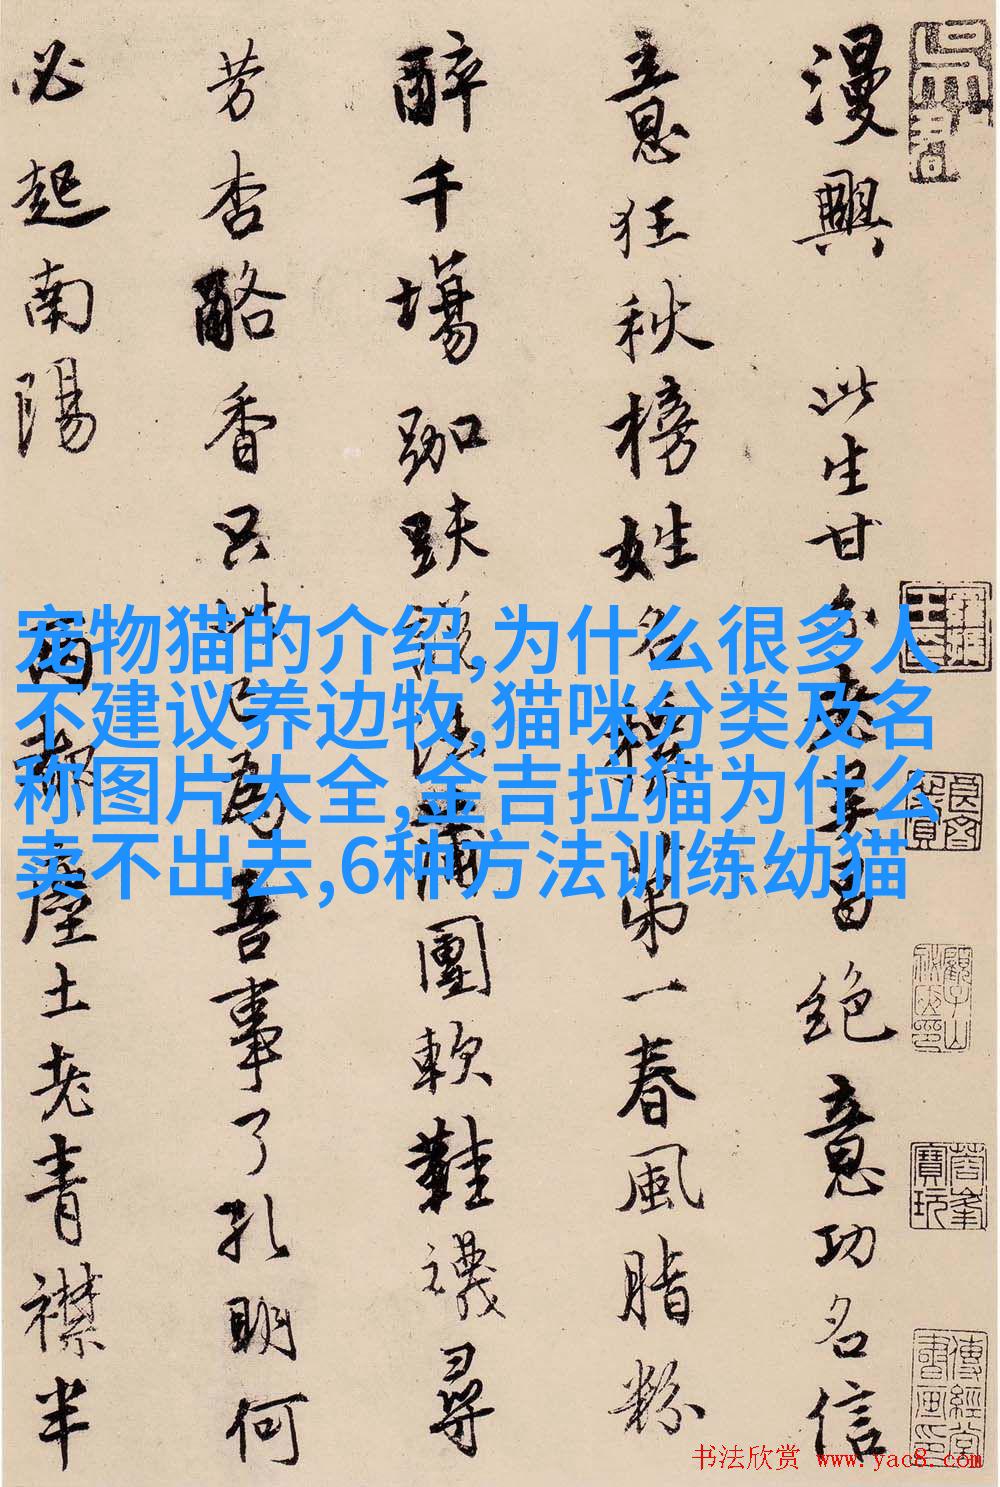 漫興 此生甘分老吳昌絕意功名信
意狂秋榜姓名標第一春風脂粉
醉千場跏趺說法蒲團軟鞋襪尋
芳杏酪香只此已為吾事了孔明何
必起南陽 兩塵土老青襟半
宠物猫的介绍,为什么很多人
不建议养边牧,猫咪分类及名
称图片大全,金吉拉猫为什么
卖不出去,6种方法训练幼猫
书法欣赏 www.yac8.com